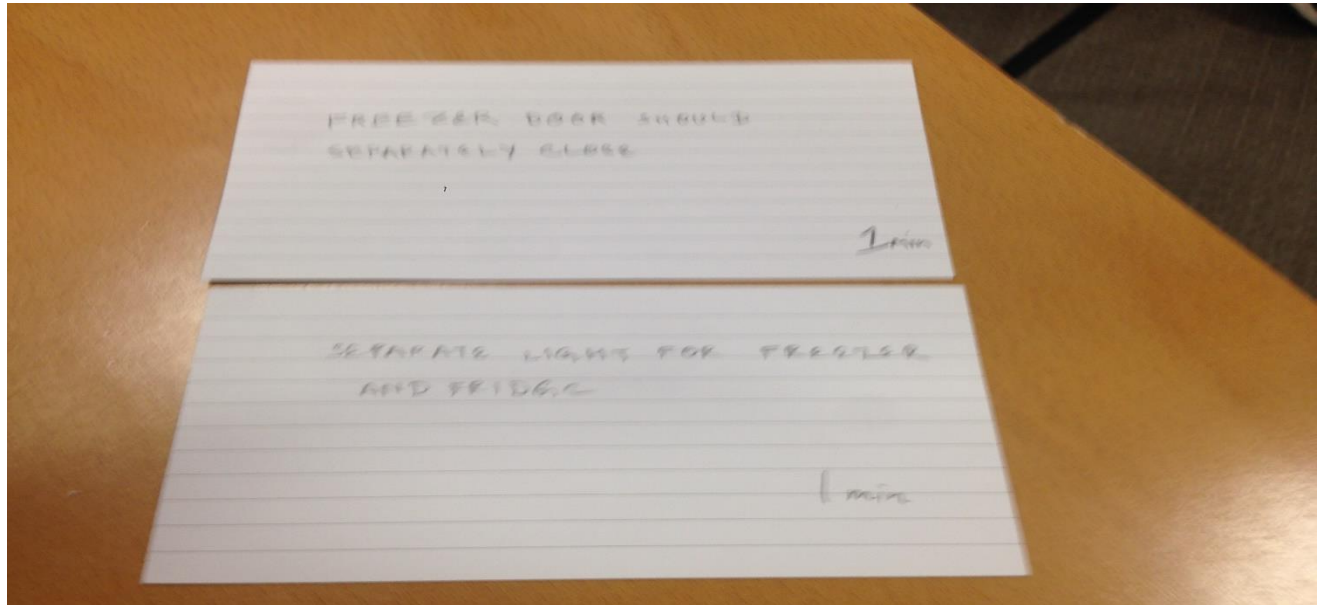 FREEZER DOOR SHOULD
SEPARATELY CLOSE
1 min
SEPARATE LIGHT FOR FREEZER
AND FRIDGE
1 min